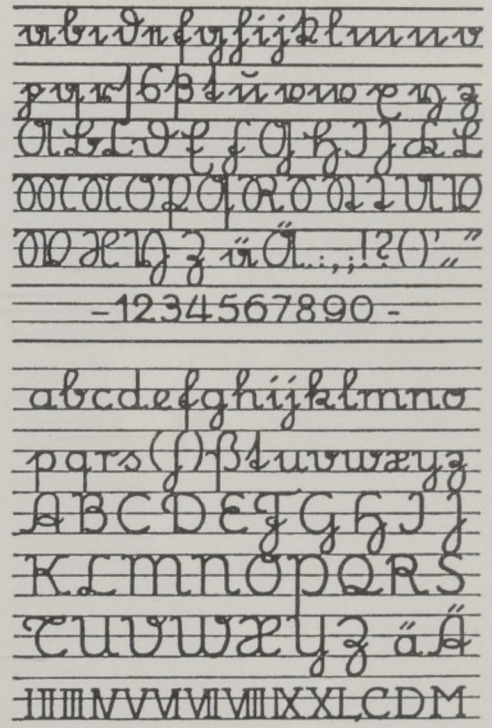 abcdefghijklmno
pqrſsßtŭvwxyz
ABCDEFGHIJKL
MNOPQRSTUV
WXYZ ä Ä.:,;!?()'„”
-1234567890 -
abcdefghijklmno
pqrs(ſ)ßtuvwxyz
ABCDEFGHIJ
KLMNOPQRS
TUVWXYZ äÄ
I II III IV V VI VII VIII IX X L C D M